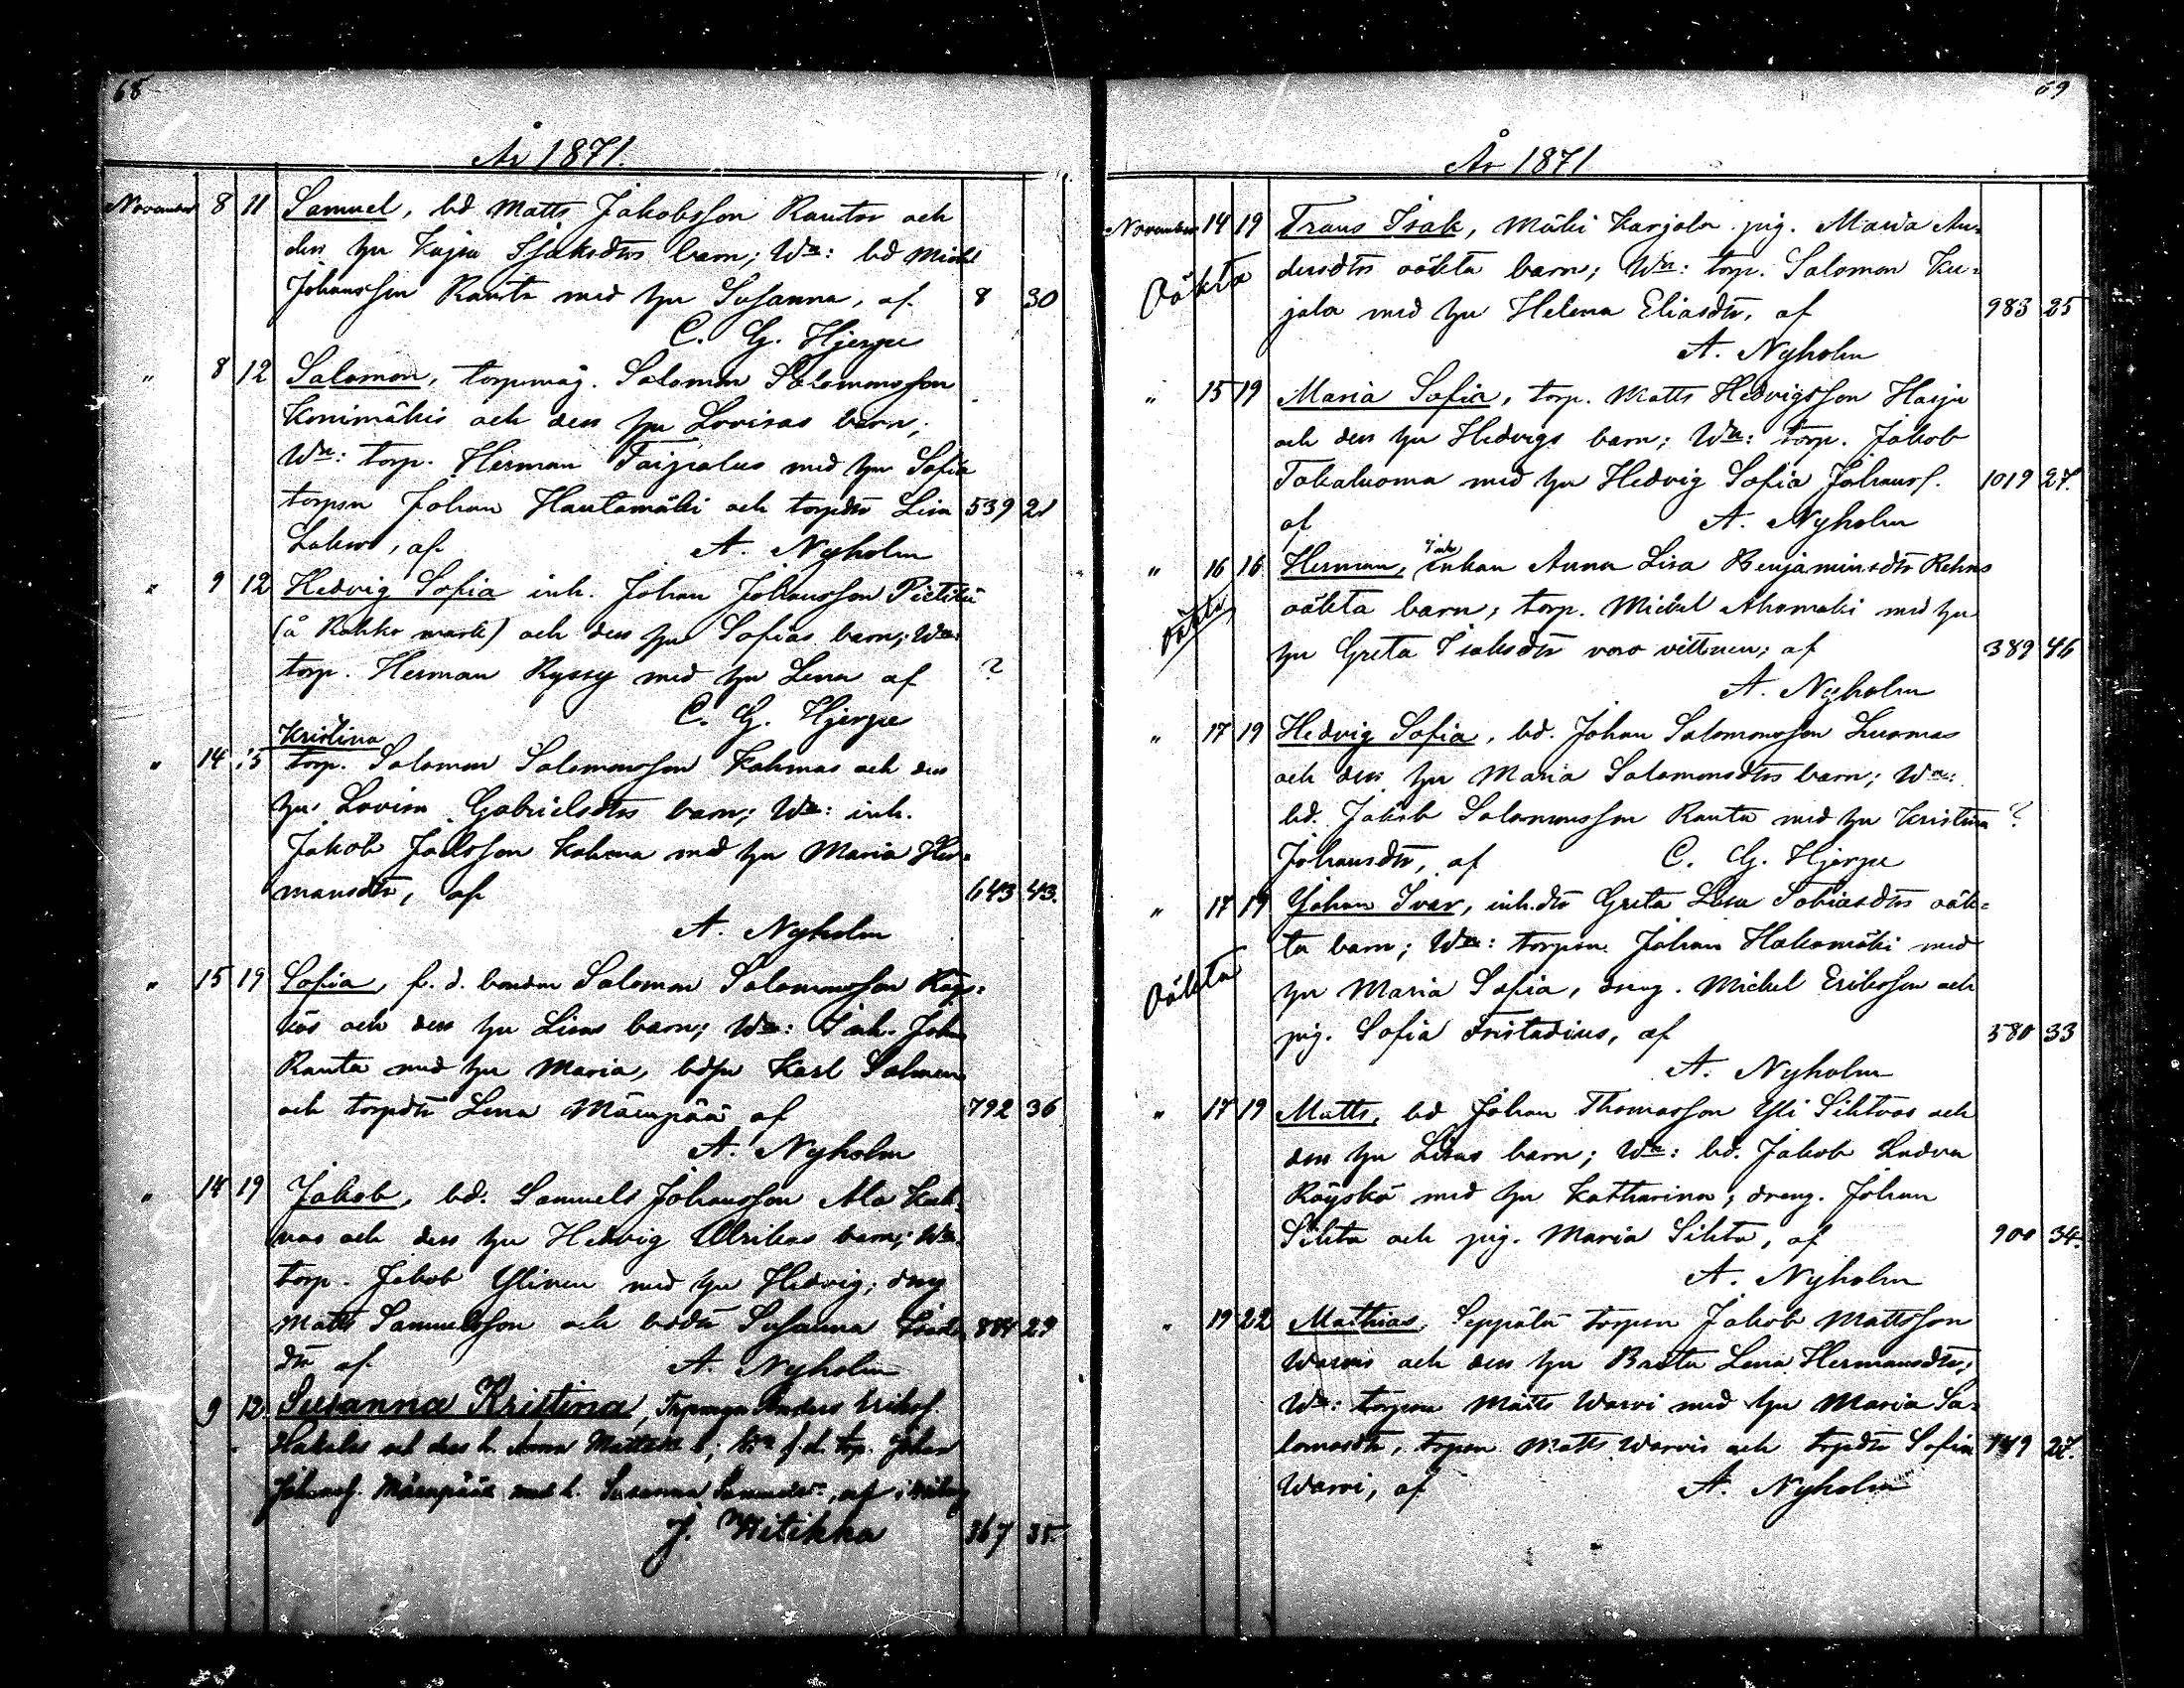 68
År 1871.
November 8 11 Samuel, bd Matts Jakobsson Rautas och
dess hu Kajsa Isaksdtrs barn; Wn: bd Michl
Johansson Rauta med hu Susanna, af 8 30
C. G. Hjerpe
" 8 12 Salomon, torpmåg. Salomon Salomonsson
Konimäkis och dess hu Lovisas barn,
Wn: torp. Herman Taipalus med hu Sofia
torpsn Johan Hautamäki och torpdtr Lisa 539 21
af A. Nyholm
" 9 12 Hedvig Sofia inh. Johan Johansson
(å Kokko mark) och dess hu Sofias barn; Wn:
torp. Herman Ryssy med hu Lena af ?
C. G. Hjerpe
Kristina
" 14 15 torp. Salomon Salomonsson Kahmas och dess
hu Lovisa Gabrielsdtrs barn; Wn: inh.
Jakob Kahma med hu Maria Her=
mansdtr, af 643 43.
A. Nyholm
" 15 19 Sofia, f. d. bonden Salomon Salomonsson Röys=
kös och dess hu Lisas barn; Wn: Inh. Johan
Rauta med hu Maria, Karl
och torpdtr Lena Mäenpää af 792 36
A. Nyholm
" 14 19 Jakob, bd. Samuels Johansson Ala
och dess hu Hedvig Ulrikas barn; Wn.
torp. Jakob Ylinen med hu Hedvig; dng
Matts Samuelsson och bddtr Susanna 884 29
dtr af A. Nyholm
9 12 Susanna Kristina, Anders Eriksf.
och dess h. Anna b; Wn f.d. torp. Johan
Johansf. Mäenpää med h. Susanna af
J. Witikka 367 35.
69
År 1871
November 14 19 Frans Isak, Mäki Karjala pig. Maria An=
Oäkta dersdtrs oäkta barn; Wn: torp. Salomon Ku=
jala med hu Helena Eliasdtr, af 983 25
A. Nyholm
" 15 19 Maria Sofia, torp. Matts Hedvigsson Harju
och dess hu Hedvigs barn; Wn: torp. Jakob
Takaluoma med hu Hedvig Sofia Johansf. 1019 27.
af A. Nyholm
" 16 16 Herman, enkan Anna Lisa Benjaminsdtr
Oäkta oäkta barn; torp. Michel Ahomäki med hu
hu Greta Isaksdtr voro vittnen; af 389 46
A. Nyholm
" 17 19 Hedvig Sofia, bd. Johan Salomonsson Luomas
och dess hu Maria Salomonsdtrs barn; Wn:
bd. Jakob Salomonsson Rauta med hu Kristina ?
Johansdtr, af C. G. Hjerpe
" 17 19 Johan Ivar, inh.dtr Greta Lisa Tobiasdtrs oäk=
ta barn; Wn: torpsn. Johan Hakomäki med
Oäkta hu Maria Sofia, dreng. Michel Eriksson och
pig. Sofia Fristadius, af 580 33
A. Nyholm
" 17 19 Matts, bd Johan Thomasson Yli Sihtvas och
dess hu Lisas barn; Wn: bd. Jakob
Röyskö med hu Katharina; dreng. Johan
Sihto och pig. Maria Sihto, af 900 34.
A. Nyholm
" 19 22 Mathias, Seppälä torpsn Jakob Mattsson
Warvis och dess hu Brita Lena Hermansdtr,
Wn: torpsn Matts Warvi med hu Maria Sa=
lomosdtr, torpsn Matts Warvis och torpdtr Sofia 149 27.
Warvi, af A. Nyholm